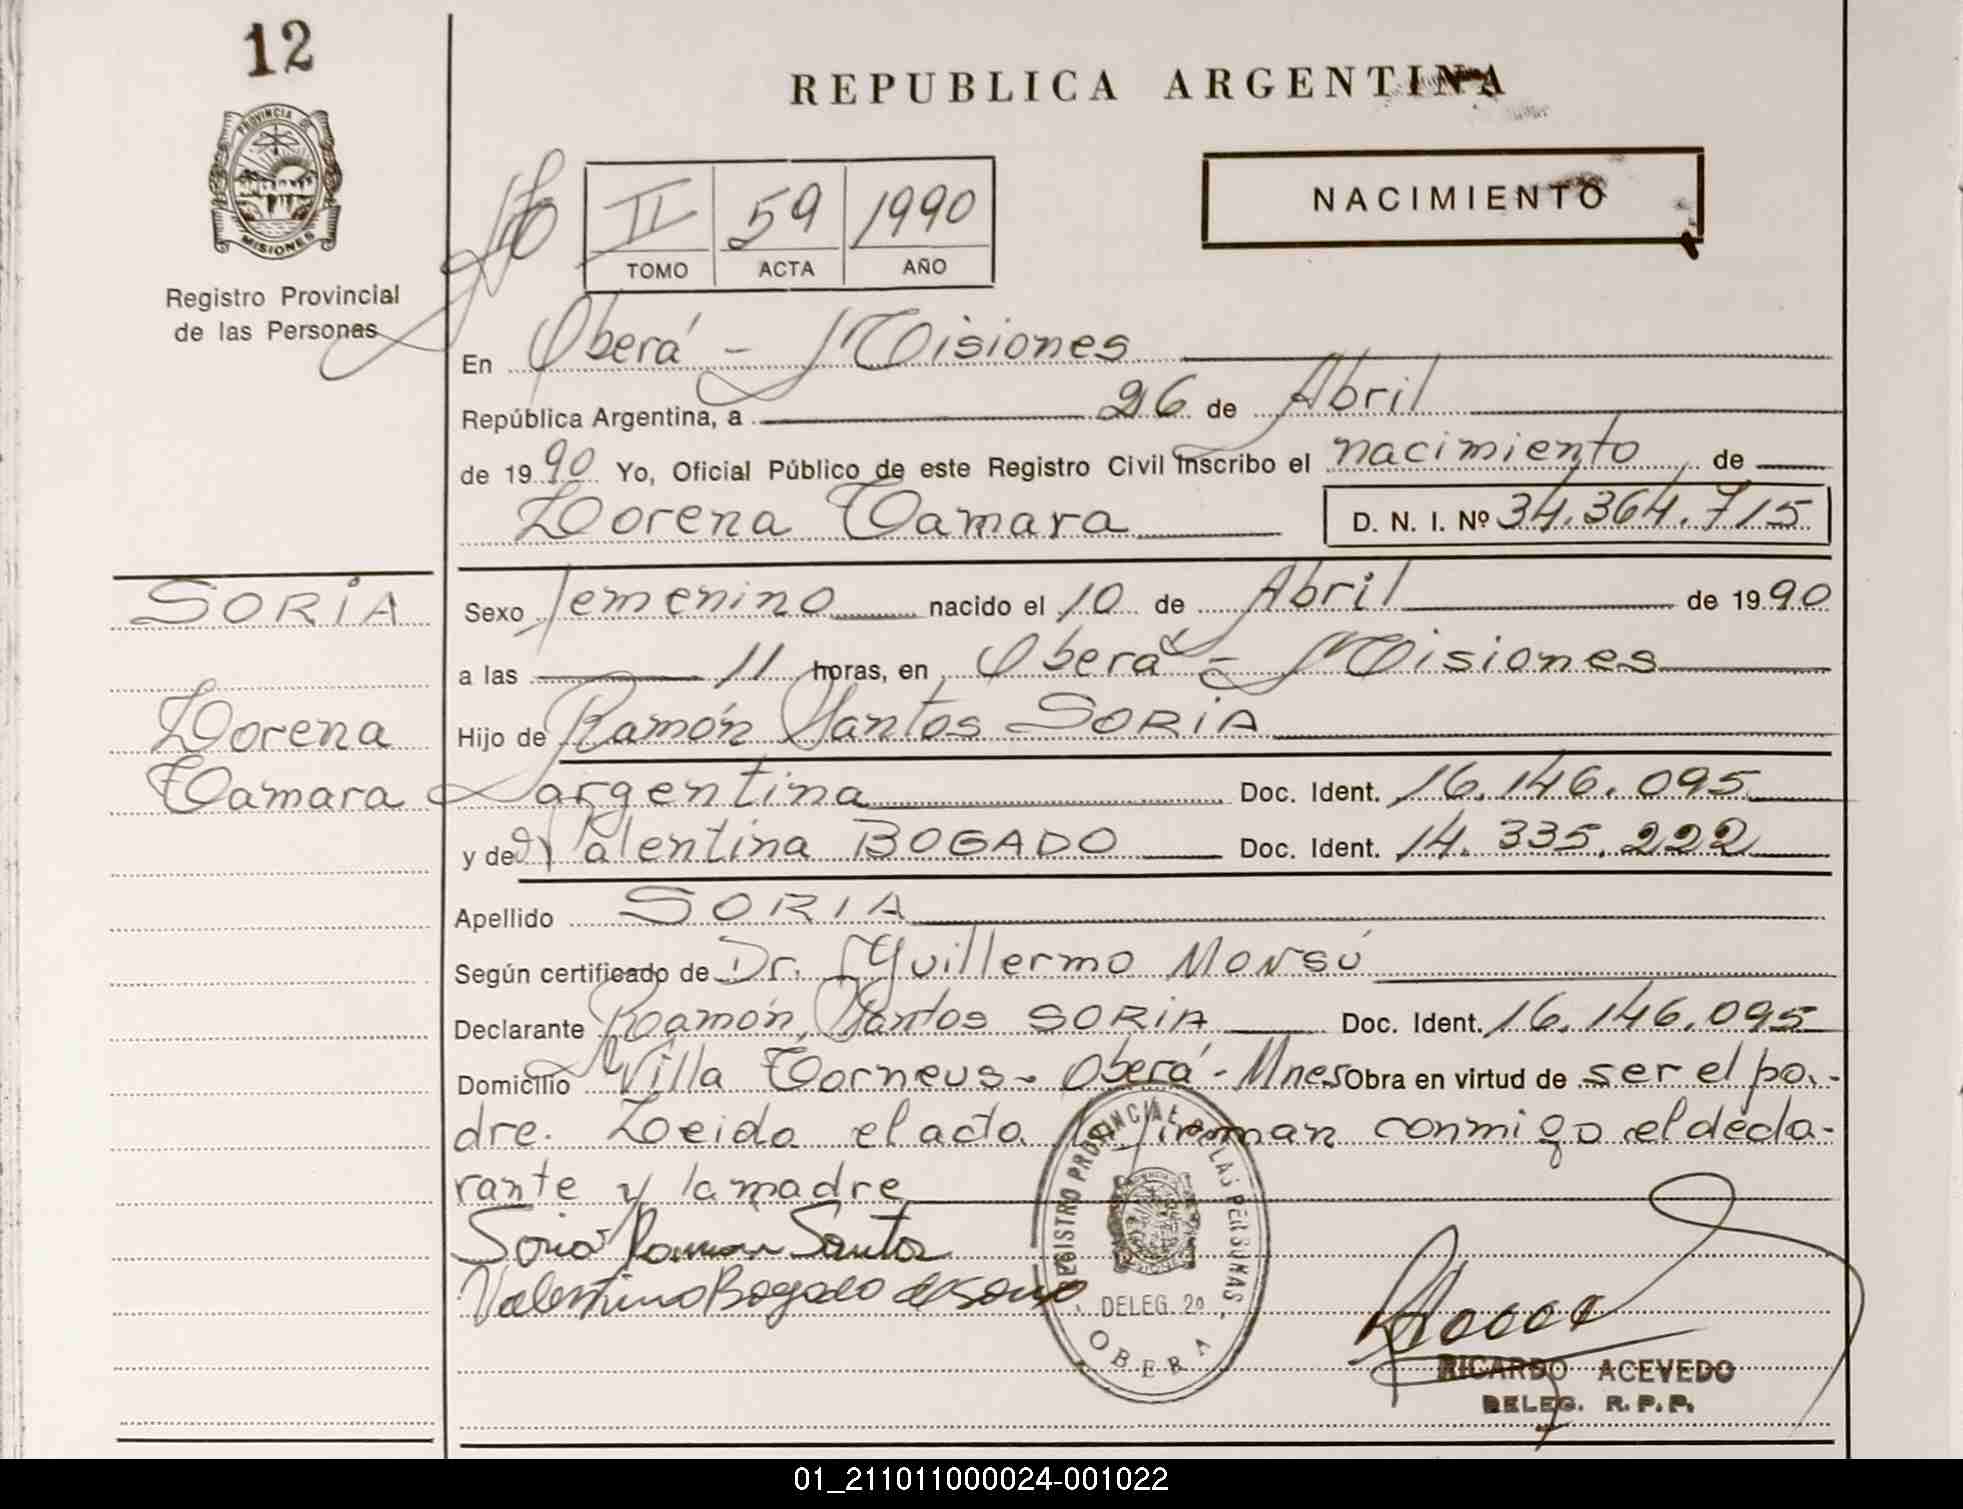 12
PROVINCIA DE
MISIONES
Registro Provincial
de las Personas
REPUBLICA ARGENTINA
NACIMIENTO
II 59 1990
TOMO ACTA AÑO
En Oberá - Misiones
República Argentina, a 26 de Abril
de 1990 Yo, Oficial Público de este Registro Civil inscribo el nacimiento de
Lorena Tamara D. N. I. Nº 34.364.715
SORIA
Lorena
Tamara
Sexo femenino nacido el 10 de Abril de 1990
a las 11 horas, en Oberá - Misiones
Hijo de Ramón Santos SORIA
argentina Doc. Ident. 16.146.095
y de Valentina BOGADO Doc. Ident. 14.335.222
Apellido SORIA
Según certificado de Dr. Guillermo Monsú
Declarante Ramón Santos SORIA Doc. Ident. 16.146.095
Domicilio Villa Torneus - Oberá - Mnes Obra en virtud de ser el pa-
dre. Leida el acta la firman conmigo el decla-
rante y la madre
Soria Ramon Santos
Valentina Bogado de Soria
REGISTRO PROVINCIAL DE LAS PERSONAS
DELEG. 2ª
OBERA
RICARDO ACEVEDO
DELEG. R. P. P.
01_211011000024-001022